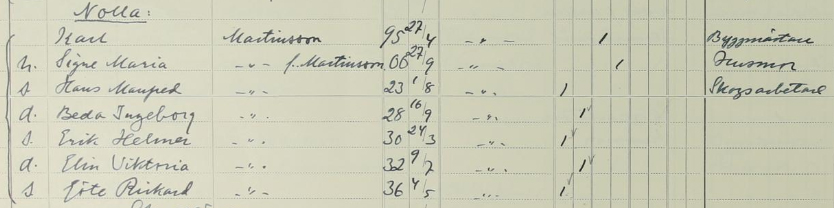 Nolla:
Karl Martinsson 95 27/4 - " - 1 Byggmästare
h. Signe Maria - " - f. Martinsson 00 27/9 - " - 1 Husmor
s Hans Manfred - " - 23 1/8 - " - 1 Skogsarbetare
d. Beda Ingeborg - " - 28 16/9 - " - 1
s. Erik Helmer - " - 30 24/3 1
d. Elin Viktoria - " - 32 9/7 - " - 1
s Göte Rickard - " - 36 4/5 - " - 1